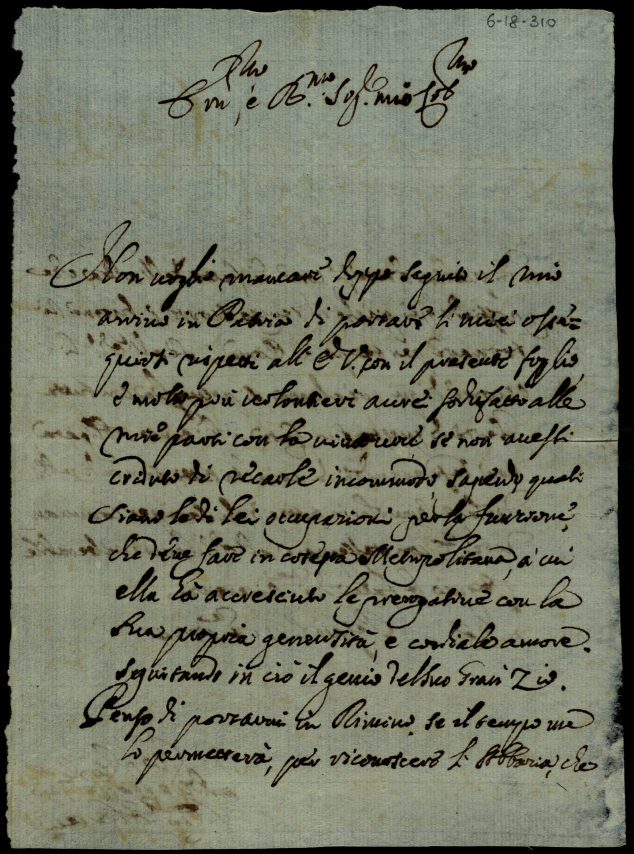 6-18-310
Em.mo e R.mo Sig.r mio
Non voglio mancare doppo seguito il mio
arrivo in Patria di portare li miei osse=
quiosi rispetti all'E.V. con il presente foglio,
e molto più volontieri avrei sodisfatto alle
mie parti con la viva voce se non avessi
creduto di recarle incommodo, sapendo quali
siano le di lei occupazioni per la funzione,
che deve fare in cotesta Metropolitana, a cui
ella hà accresciuto le prerogative con la
sua propria generosità, e cordiale amore,
seguitando in ciò il genio del suo Gran Zio.
Penso di portarmi in Rimino, se il tempo me
lo permetterà, per riconoscere l'Abbazia, che